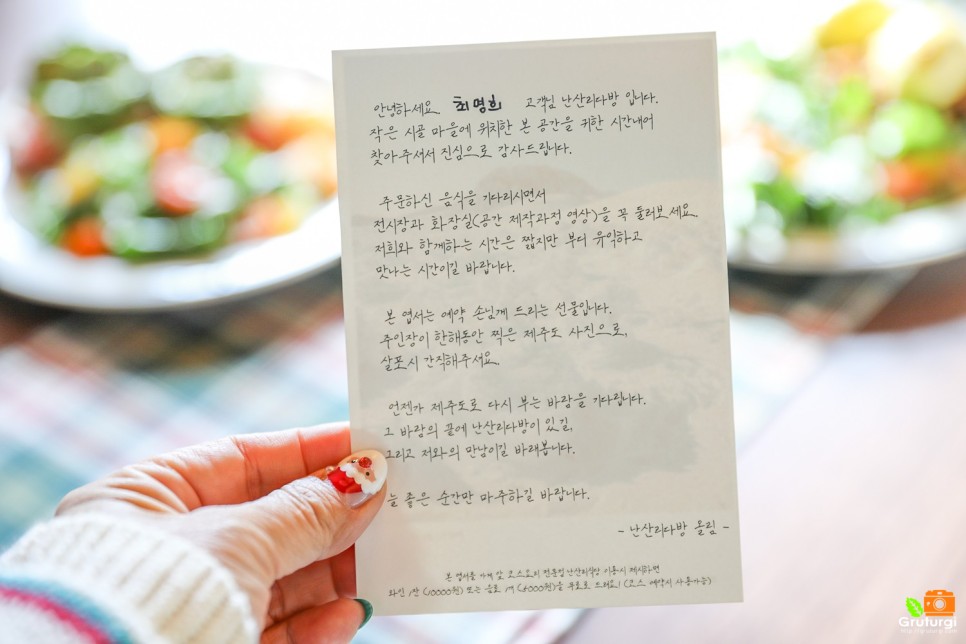 안녕하세요 최명희 고객님 난산리다방 입니다.
작은 시골 마을에 위치한 본 공간을 귀한 시간내어
찾아주셔서 진심으로 감사드립니다.
주문하신 음식을 기다리시면서
전시장과 화장실(공간 제작과정 영상)을 꼭 둘러보세요.
저희와 함께하는 시간은 짧지만 부디 유익하고
맛나는 시간이길 바랍니다.
본 엽서는 예약 손님께 드리는 선물입니다.
주인장이 한해동안 찍은 제주도 사진으로,
살포시 간직해주세요.
언젠가 제주도로 다시 부는 바람을 기다립니다.
그 바람의 끝에 난산리다방이 있길,
그리고 저와의 만남이길 바래봅니다.
늘 좋은 순간만 마주하길 바랍니다.
- 난산리다방 올림 -
본 엽서를 가게 앞 코스요리 전문점 난산리식당 이용시 제시하면
와인 1잔 (10000원) 또는 음료 1개 (4000원)을 무료로 드려요! (코스 예약시 사용가능)
Gruturgi